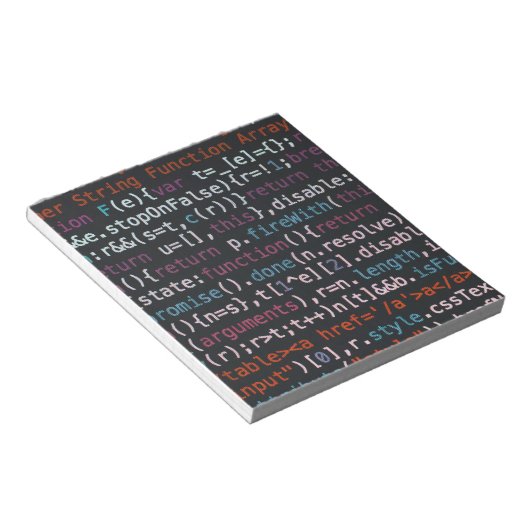 er String Function Array
on F(e){var t=_[e]={};
&&e.stopOnFalse){r=!1;bre
;r&&(s=t,c(r))}return thi
turn u=[],this},disable:
(){return p.fireWith(this
state:function(){return
romise().done(n.resolve)
(){n=s},t[1^e][2].disabl
arguments),r=n.length,i
(r);r>t;t++)n[t]&&b.isFu
table><a href='/a'>a</a>
input")[0],r.style.cssTex